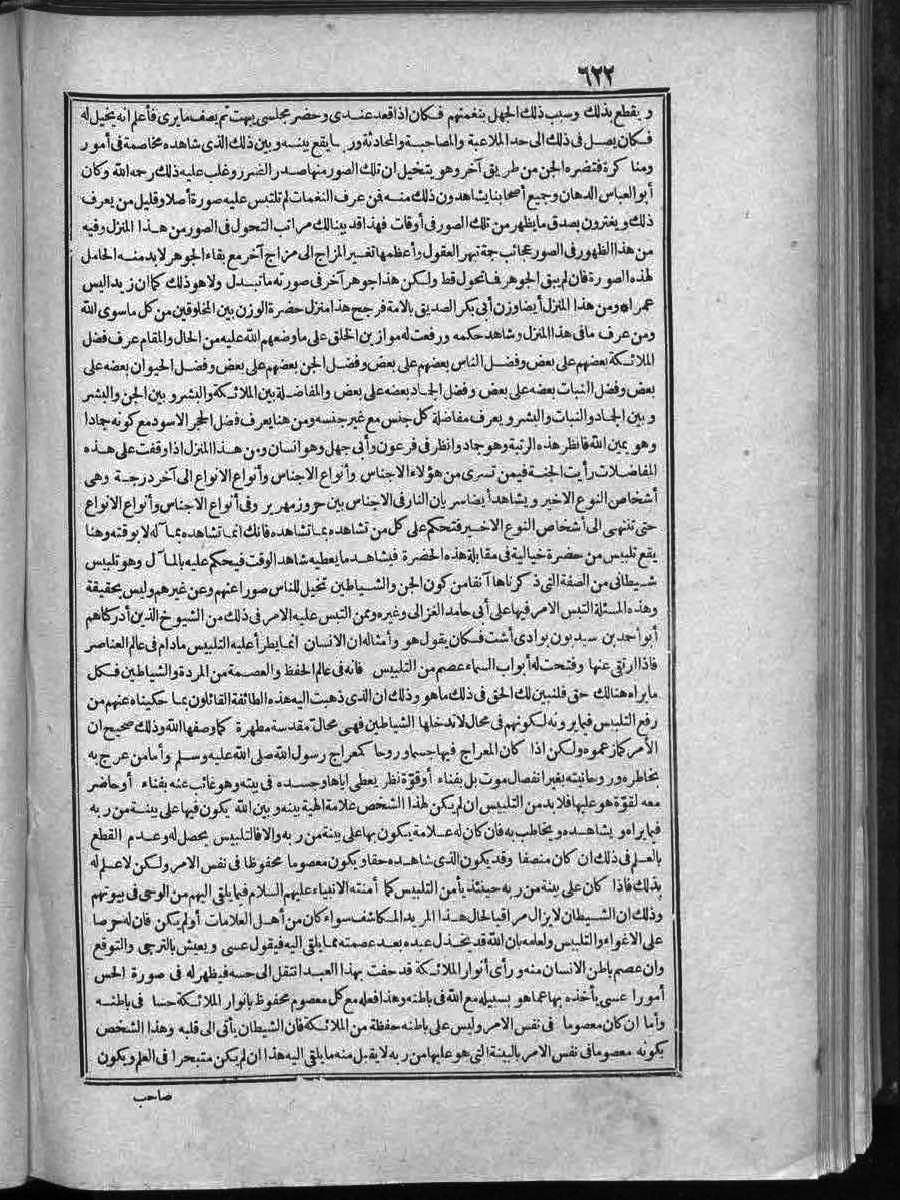 ٦٢٢
و يقطع بذلك وسبب ذلك الجهل بنغمتهم فكان اذا قعد عندى وحضر مجلسى يبهت ثم يصف ما يرى فأعلم انه يخيل له
فكان يصل فى ذلك الى حد الملاعبة والمصاحبة والمحادثة ور بما يقع بينه و بين ذلك الذى شاهده مخاصمة فى أمور
ومنا كرة فتضره الجن من طريق آخر وهو يتخيل ان تلك الصور منها صدر الضرر وغلب عليه ذلك رحمه الله وكان
أبو العباس الدهان وجميع أصحابنا يشاهدون ذلك منه فن عرف النغمات لم تلتبس عليه صورة أصلا وقليل من يعرف
ذلك و يغترون بصدق ما يظهر من تلك الصور فى أوقات فهذا قد بينا لك مراتب التحول فى الصور من هذا المنزل وفيه
من هذا الظهور فى الصور عجائب جمة تبهر العقول وأعظمها تغيير المزاج الى مزاج آخر مع بقاء الجوهر لا بد منه الحامل
لهذه الصورة فان لم يبق الجوهر فما تحول قط ولكن هذا جوهر آخر فى صورته ما تبدل ولا هو ذلك كما ان زيدا ليس
عمرا ومن هذا المنزل أيضا وزن أبى بكر الصديق بالامة فرجح هذا منزل حضرة الوزن بين المخلوقين من كل ما سوى الله
ومن عرف ما فى هذا المنزل وشاهد حكمه ورفعت له موازين الخلق على ما وضعهم الله عليه من الحال والمقام عرف فضل
الملائكة بعضهم على بعض وفضل الناس بعضهم على بعض وفضل الجن بعضهم على بعض وفضل الحيوان بعضه على
بعض وفضل النبات بعضه على بعض وفضل الجماد بعضه على بعض والمفاضلة بين الملائكة والبشر و بين الجن والبشر
و بين الجماد والنبات والبشر و يعرف مفاضلة كل جنس مع غير جنسه ومن هنا يعرف فضل الحجر الاسود مع كونه جمادا
وهو يمين الله فانظر هذه الرتبة وهو جماد وانظر فى فرعون وأبى جهل وهو انسان ومن هذا المنزل اذا وقفت على هذه
المفاضلات رأيت الجنة فيمن تسرى من هؤلاء الاجناس وأنواع الاجناس وأنواع الانواع الى آخر درجة وهى
أشخاص النوع الاخير و يشاهد أيضا سر يان النار فى الاجناس بين حرور وزمهرير وفى أنواع الاجناس وأنواع الانواع
حتى تنتهى الى أشخاص النوع الاخير فتحكم على كل من تشاهده بما تشاهده فانك انما تشاهده بما آله لا بوقته وهنا
يقع تلبيس من حضرة خيالية فى مقابلة هذه الحضرة فيشاهد ما يعطيه شاهد الوقت فيحكم عليه بالمآل وهو تلبيس
شيطانى من الصفة التى ذكرناها آنفا من كون الجن والشياطين تخيل للناس صورا عنهم وعن غيرهم وليس بحقيقة
وهذه المسئلة التبس الامر فيها على أبى حامد الغزالى وغيره وممن التبس عليه الامر فى ذلك من الشيوخ الذين أدركاهم
أبو أحمد بن سيد بون بوادى أشت فكان يقول هو وأمثاله ان الانسان انما يطرأ عليه التلبيس مادام فى عالم العناصر
فاذا ارتقى عنها وفتحت له أبواب السماء عصم من التلبيس فانه فى عالم الحفظ والعصمة من المردة والشياطين فكل
ما يراه هنالك حق فلنبين لك الحق فى ذلك ما هو وذلك ان الذى ذهبت اليه هذه الطائفة القائلون بما حكيناه عنهم من
رفع التلبيس فيما يرونه لكونهم فى محال لا تدخلها الشياطين فهى محال مقدسة مطهرة كما وصفها الله وذلك صحيح ان
الأمر كما زعموه ولكن اذا كان المعراج فيها جسما وروحا كمعراج رسول الله صلى الله عليه وسلم وأما من عرج به
بخاطره وروحانيته بغير انفصال موت بل بفناء أو قوّة نظر يعطى اياها وجسده فى بيته وهو غائب عنه بفناء أو حاضر
معه لقوّة هو عليها فلا بد من التلبيس ان لم يكن لهذا الشخص علامة الهية بينه و بين الله يكون فيها على بينة من ربه
فيما يراه و يشاهده و يخاطب به فان كان له علامة يكون بها على بينة من ربه والا فالتلبيس يحصل له وعدم القطع
بالعلم فى ذلك ان كان منصفا وقد يكون الذى شاهده حقا و يكون معصوما محفوظا فى نفس الامر ولكن لا علم له
بذلك فاذا كان على بينة من ربه حينئذ يأمن التلبيس كما أمنته الانبياء عليهم السلام فيما يلقى اليهم من الوحى فى بيوتهم
وذلك ان الشيطان لا يزال مراقبا لحال هذا المريد المكاشف سواء كان من أهل العلامات أو لم يكن فان له حرصا
على الاغواء والتلبيس ولعلمه بان الله قد يخذل عبده بعد عصمته مما يلقى اليه فيقول عسى و يعيش بالترجى والتوقع
وان عصم باطن الانسان منه ورأى أنوار الملائكة قد حفت بهذا العبد انتقل الى حسه فيظهر له فى صورة الحس
أمورا عسى يأخذه بها عما هو بسبيله مع الله فى باطنه وهذا فعله مع كل معصوم محفوظ بانوار الملائكة حسا فى باطنه
وأما ان كان معصوما فى نفس الامر وليس على باطنه حفظة من الملائكة فان الشيطان يأتى الى قلبه وهذا الشخص
بكونه معصوما فى نفس الامر بالبينة التى هو عليها من ربه لا يقبل منه ما يلقى اليه هذا ان لم يكن متبحرا فى العلم و يكون
صاحب